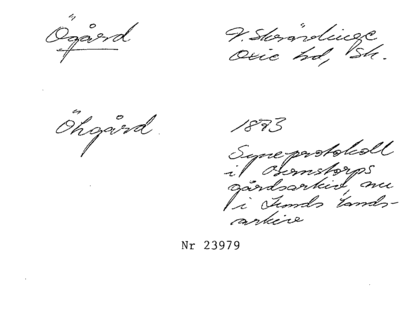 Ögård
V. Skrävlinge
Oxie hd, Sk.
Öhgård
1873
Syneprotokoll
i Bernstorps
gårdsarkiv, nu
i Lunds lands-
arkiv
Nr 23979